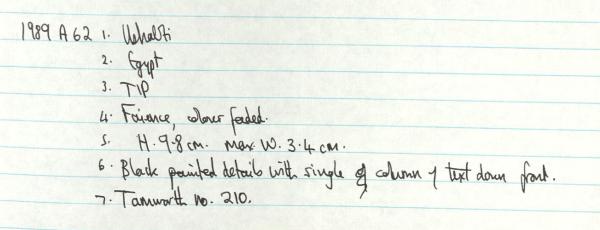 1989 A 62 1. Ushabti
2. Egypt
3. TIP
4. Faience, colour faded.
5. H. 9.8 cm. max W. 3.4 cm.
6. Black painted details with single column of text down front.
7. Tamworth no. 210.